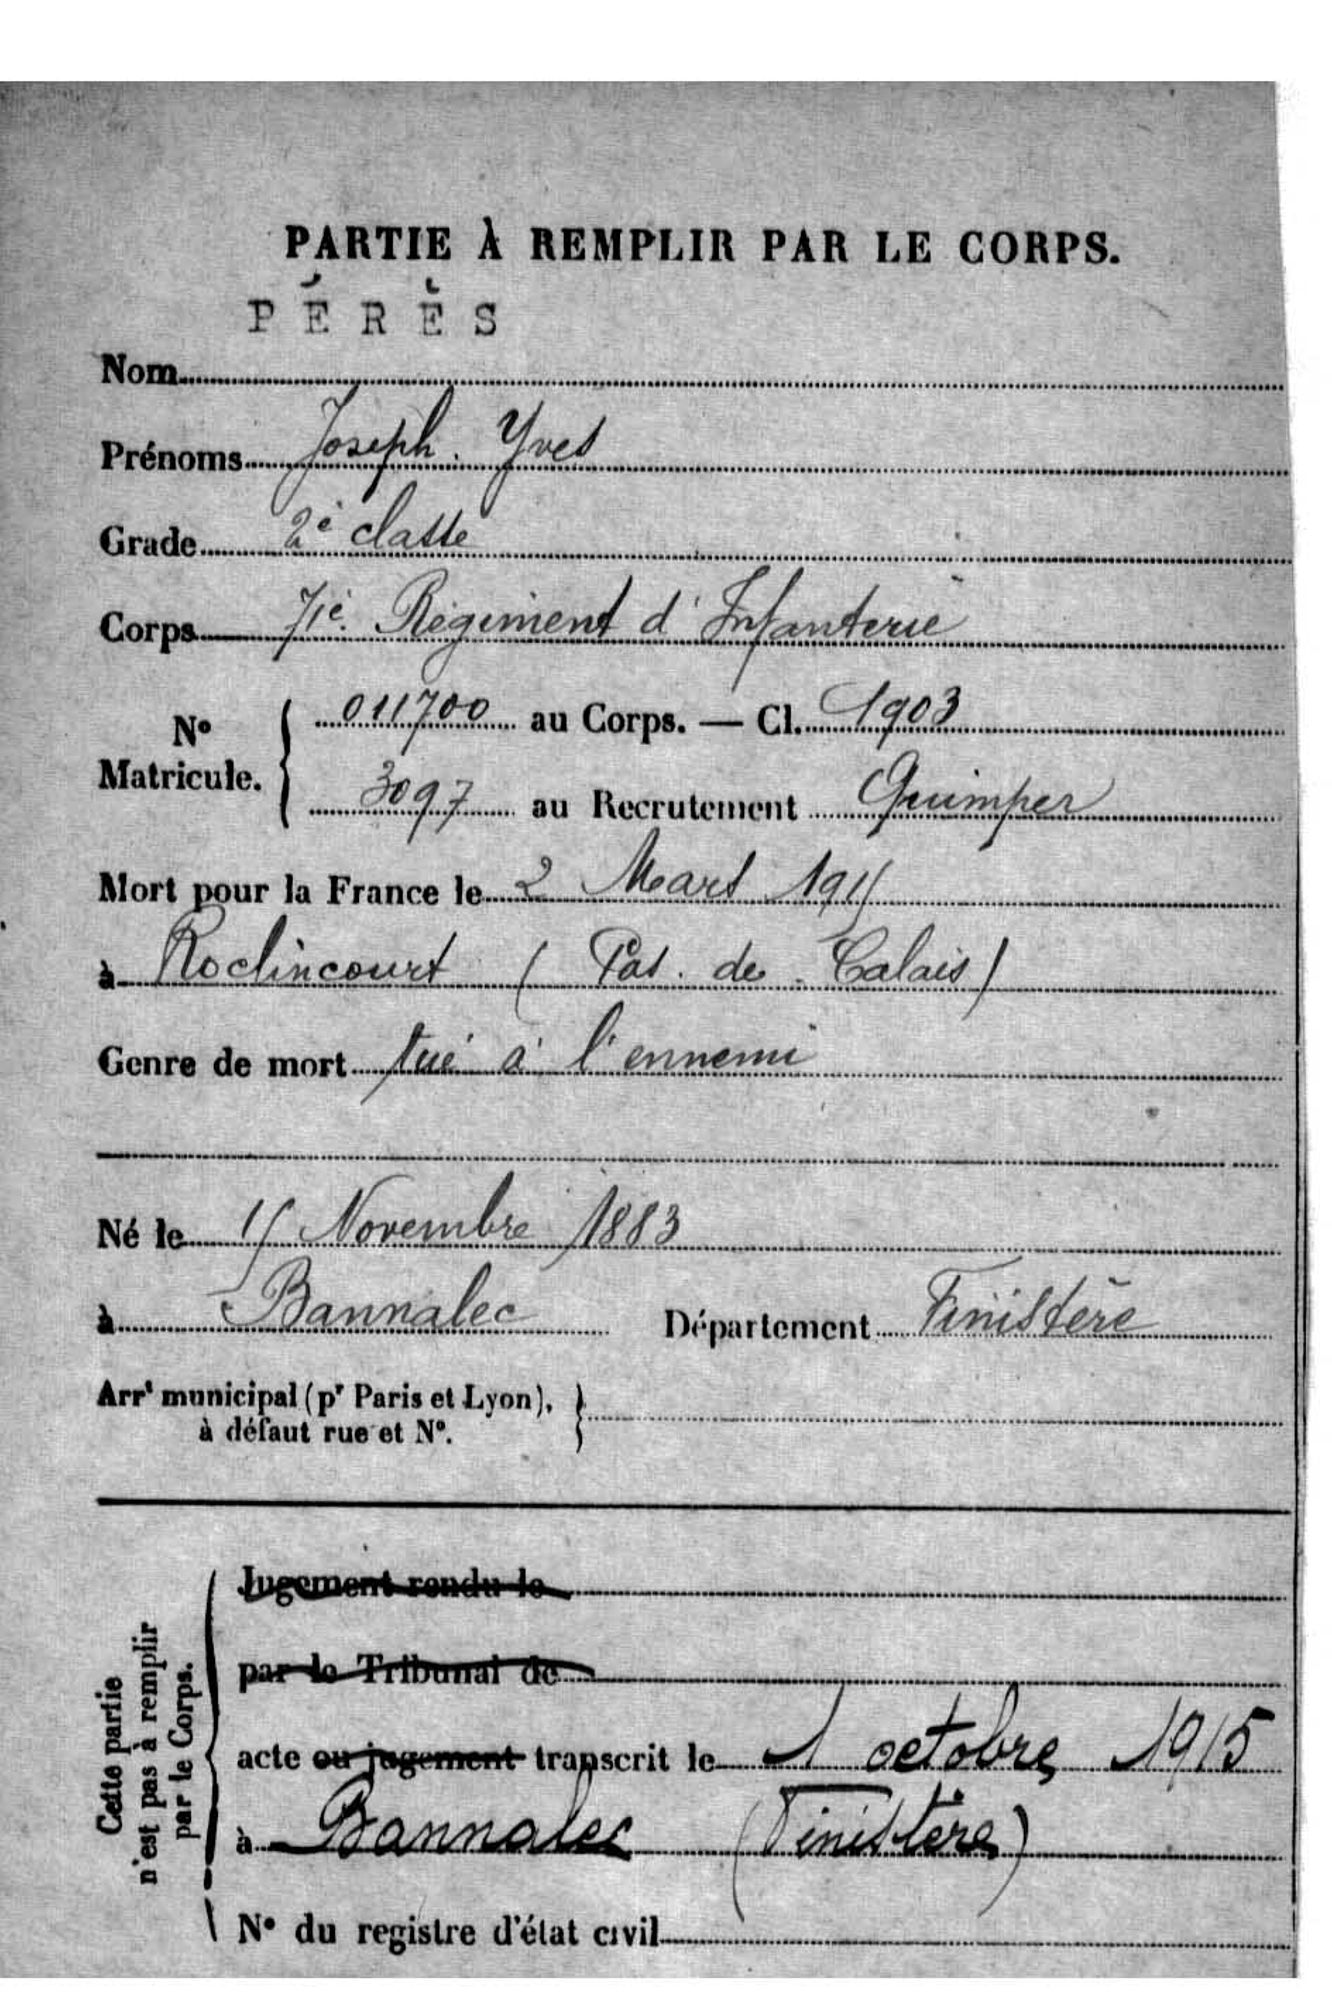 PARTIE À REMPLIR PAR LE CORPS.
PÉRÈS
Nom
Prénoms Joseph. Yves
Grade 2è classe
Corps 71è. Régiment d'Infanterie
No Matricule. { 011700 au Corps. — Cl. 1903
3097 au Recrutement Quimper
Mort pour la France le 2 Mars 1915
à Roclincourt (Pas. de. Calais)
Genre de mort tué à l'ennemi
Né le 15 Novembre 1883
à Bannalec Département Finistère
Arrt municipal (pr Paris et Lyon), }
à défaut rue et N°.
Cette partie
n'est pas à remplir
par le Corps.
Jugement rendu le
par le Tribunal de
acte ou jugement transcrit le 1 octobre 1915
à Bannalec (Finistère)
N° du registre d'état civil